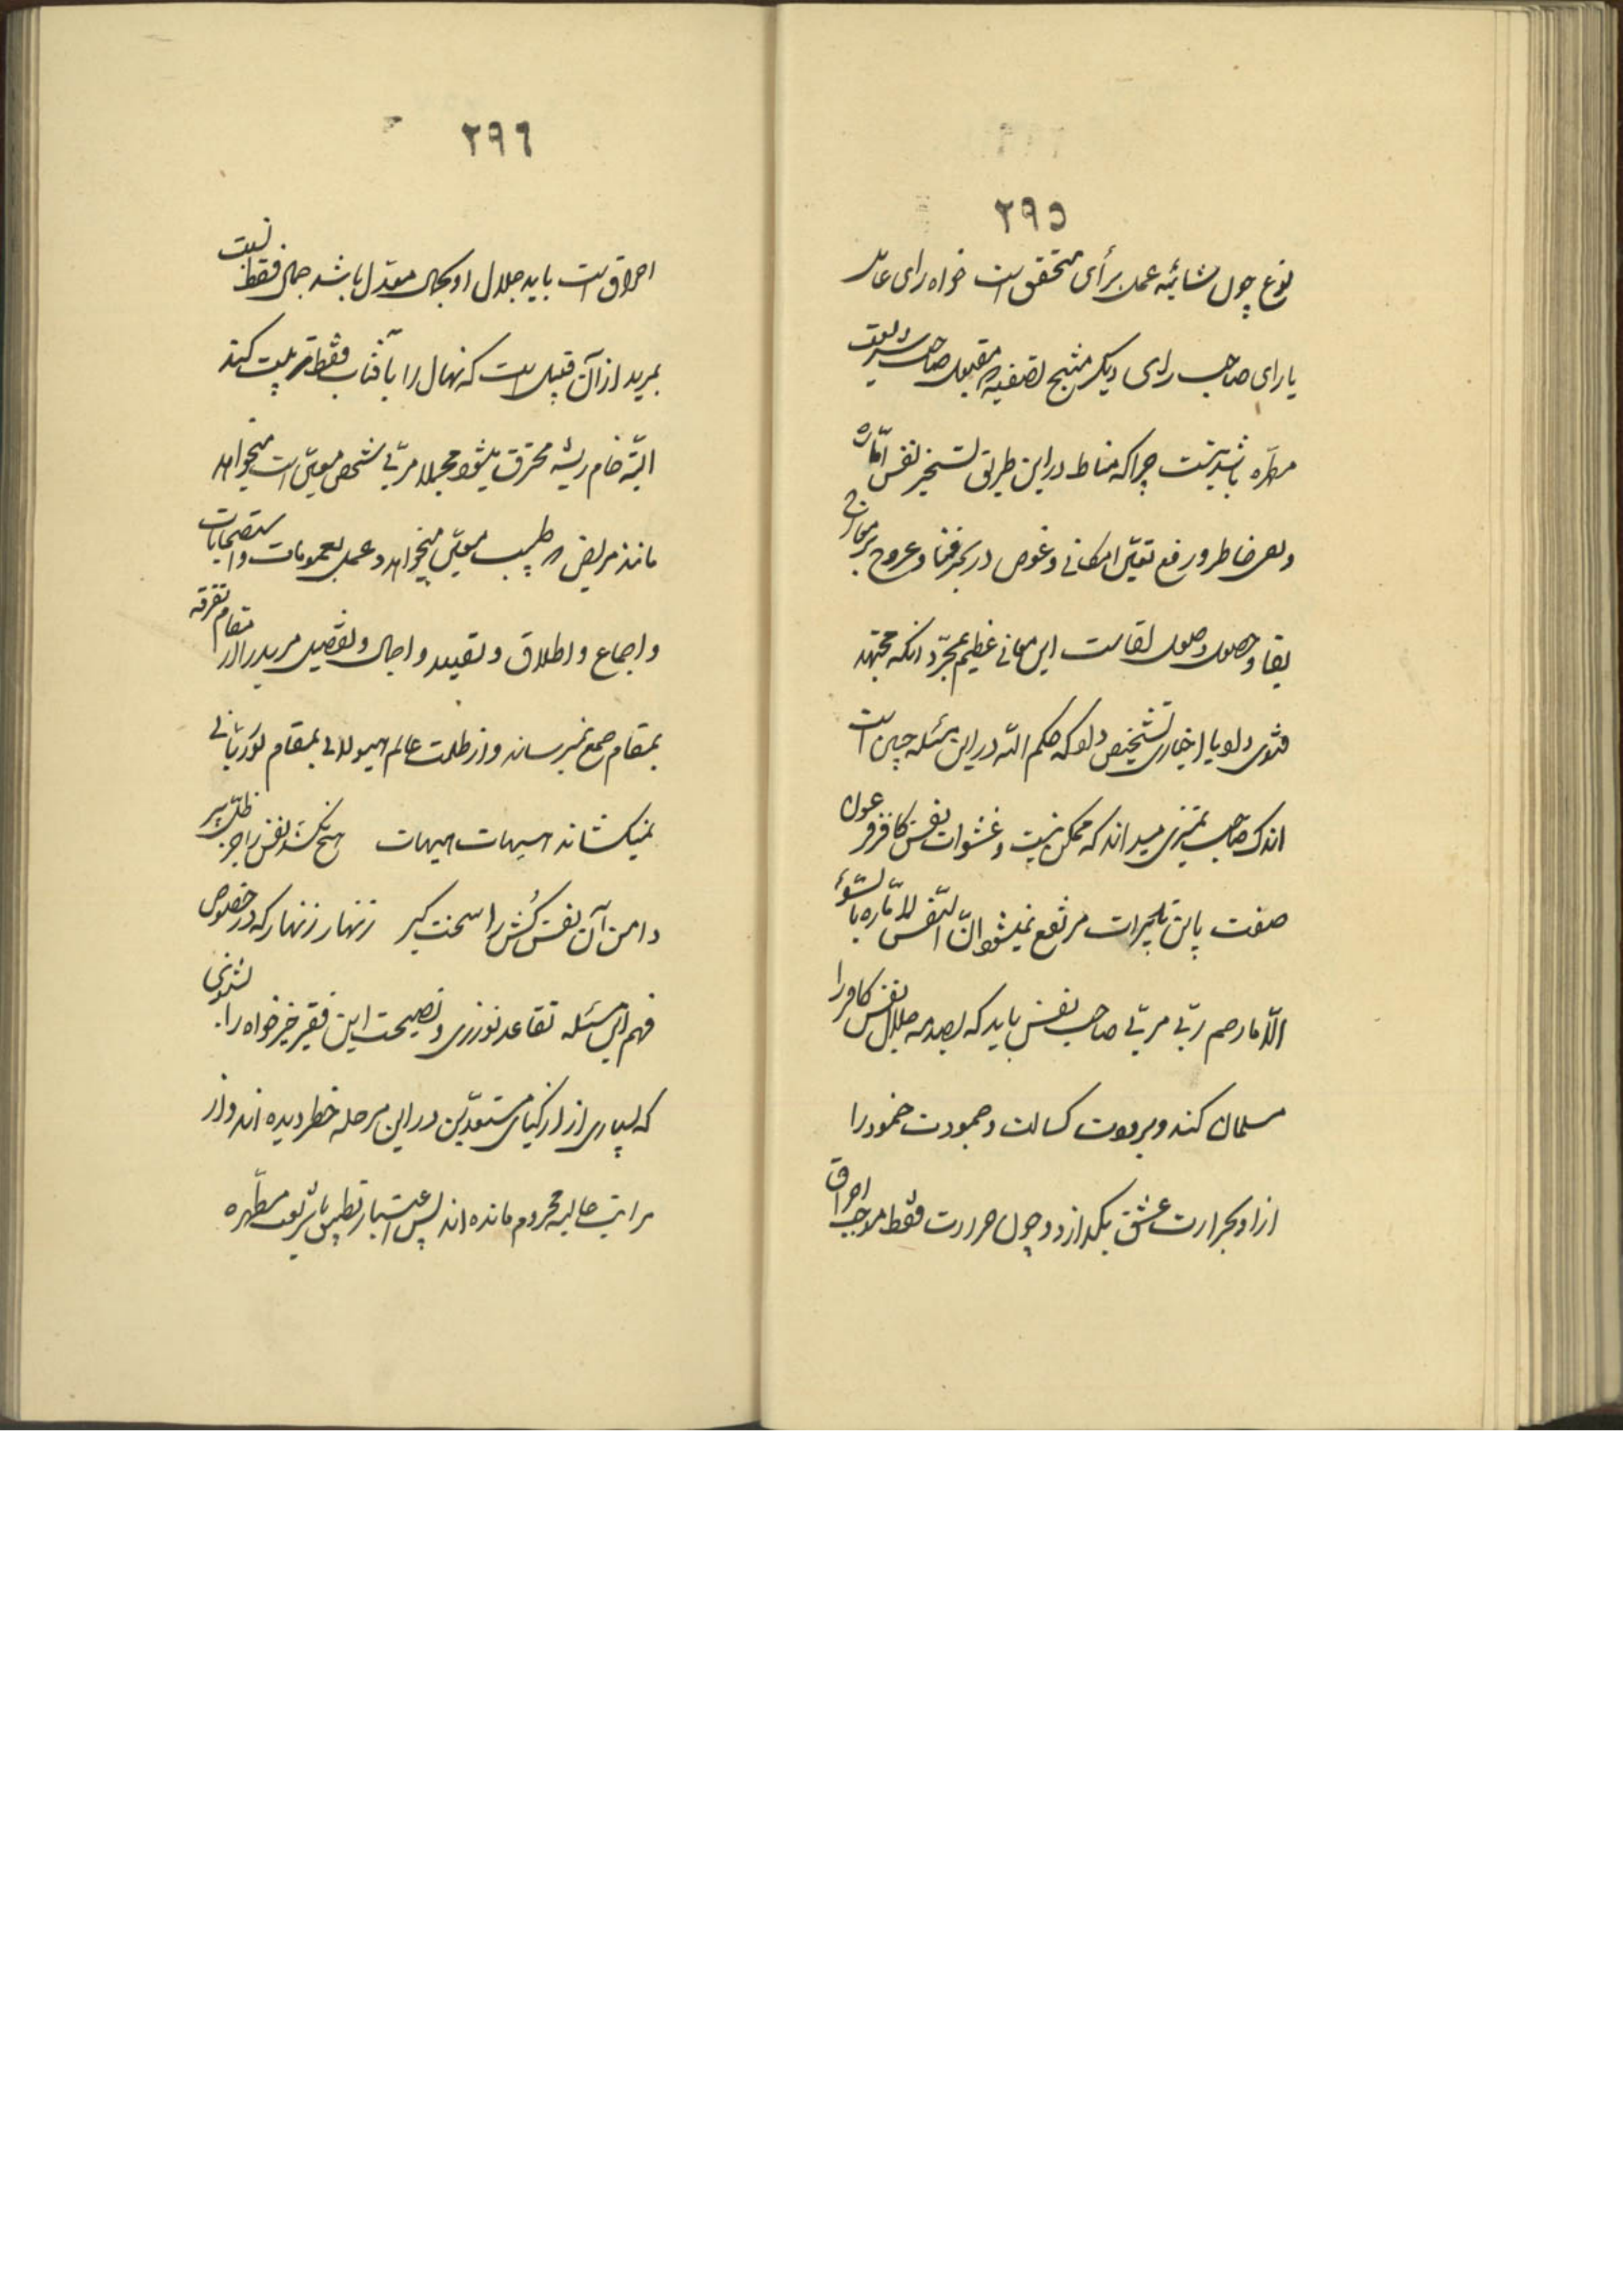 ۲۹۵
نوع چون شائبه عمل برأی متحقق است خواه رای عامل
یا رای صاحب رای دیگر منتج تصفیه مقبول صاحب شریعت
مطهره باشد نیست چرا که مناط در این طریق تسخیر نفس اماره
و بعض خاطر و رفع تعین امکانی و غوص در بحر فنا و عروج بر معارج
بقا و حصول وصول لقاست این معانی عظیم بمجرد آنکه مجتهد
فتوی داد یا اخباری تشخیص داد که حکم الله در این مسئله چنین است
اندک صاحب تمیزی میداند که ممکن نیست و غشوات نفس کافر فرعون
صفت باین تدبیرات مرتفع نمیشود ان النفس لاماره بالسوء
الا ما رحم ربی مربی صاحب نفس باید که بصدمه جلال نفس کافر را
مسلمان کند و برودت کسالت و جمودت خمود را
از او بحرارت عشق بگدازد و چون حرارت فقط موجب احراق
۲۹٦
احراق است باید جلال او بجمال معتدل باشد جمال فقط نسبت
بمرید از آن قبیل است که نهال را بآفتاب فقط تربیت کند
البته خام ریشه محترق میشود مجملا مربی شخص معین است میخواهد
مانند مریض که طبیب معین میخواهد و عمل بعمومات و استصحابات
و اجماع و اطلاق و تقیید و اجمال و تفصیل مرید را از مقام تفرقه
بمقام جمع نمیرساند و از ظلمت عالم هیولانی بمقام نورانی
نمیکشاند هیهات هیهات هیچ نکشد نفس را جز ظل پیر
دامن آن نفس کُش را سخت گیر زنهار زنهار که در خصوص
فهم این مسئله تقاعد نورزی و نصیحت این فقیر خیر خواه را بشنوی
که بسیاری از ازکیای مستعدین در این مرحله خطر دیده اند و از
مراتب عالیه محروم مانده اند پس اعتبار تطبیق با شریعت مطهره